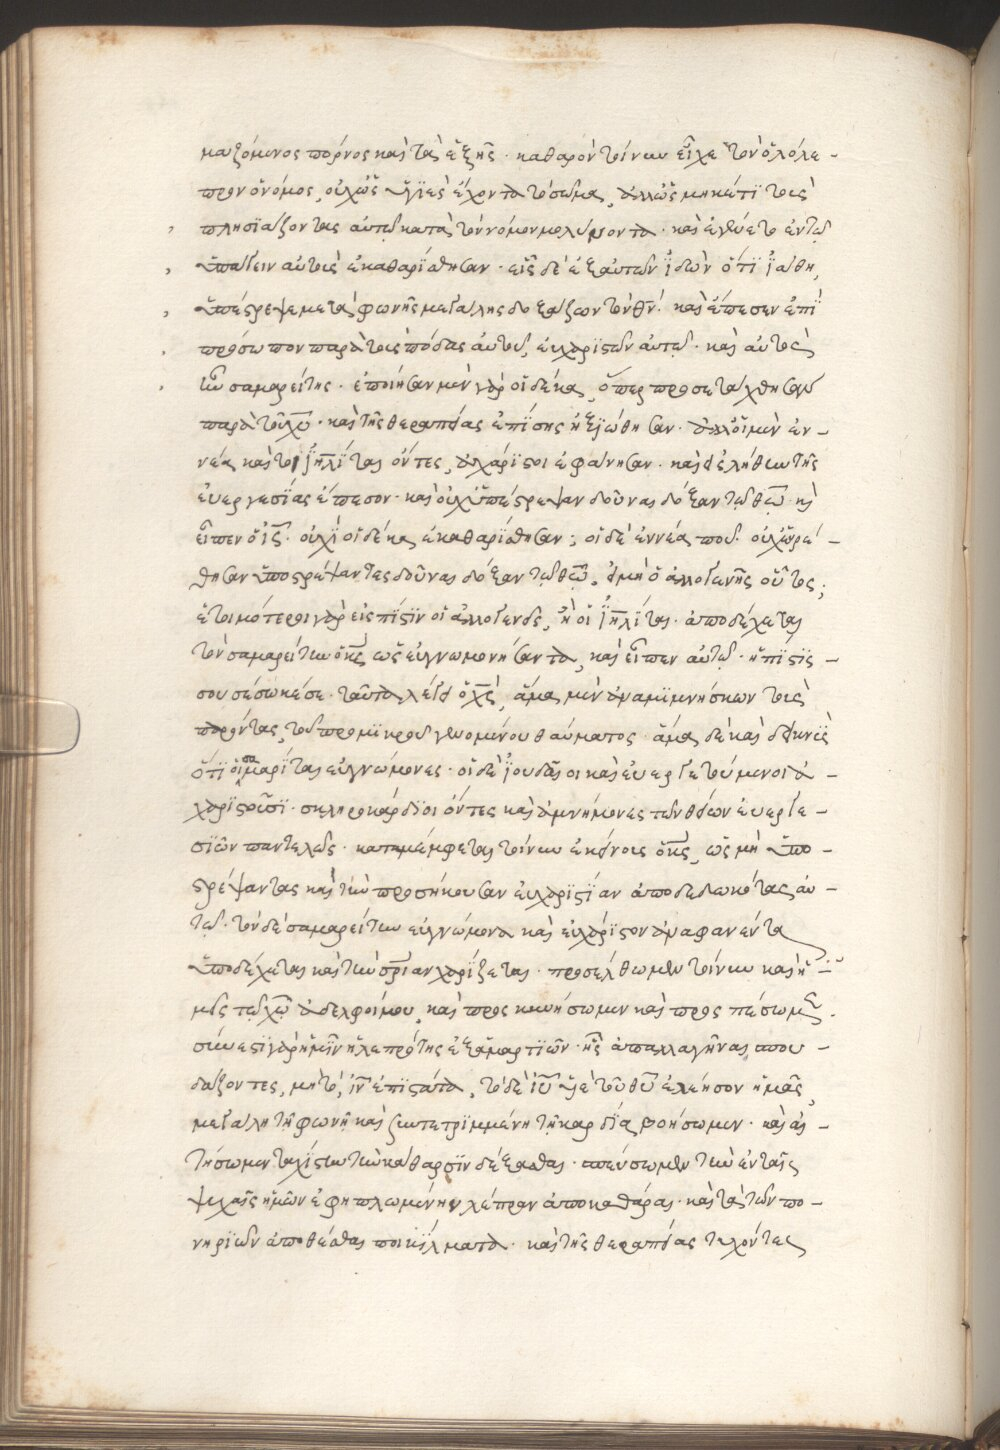 μαζόμενος πόρνος καὶ τὰ ἑξῆς· καθαρὸν τοίνυν εἶχε τὸν ὁλόλε-
προν ὁ νόμος, οὐχ ὡς ὑγιὲς ἔχοντα τὸ σῶμα, ἀλλ' ὡς μηκέτι τοὺς
πλησιάζοντας αὐτῷ κατὰ τὸν νόμον μολύνοντα· καὶ ἐγένετο ἐν τῷ
ὑπάγειν αὐτοὺς ἐκαθαρίσθησαν· εἷς δὲ ἐξ αὐτῶν ἰδὼν ὅτι ἰάθη,
ὑπέστρεψε μετὰ φωνῆς μεγάλης δοξάζων τὸν θν· καὶ ἔπεσεν ἐπὶ
πρόσωπον παρὰ τοὺς πόδας αὐτοῦ, εὐχαριστῶν αὐτῷ· καὶ αὐτὸς
ἦν σαμαρείτης· ἐποίησαν μὲν γὰρ οἱ δέκα, ὅπερ προσετάχθησαν
παρὰ τοῦ χυ· καὶ τῆς θεραπείας ἐπίσης ἠξιώθησαν· ἀλλ' οἱ μὲν ἐν-
νέα, καίτοι ἰηλῖται ὄντες, ἀχάριστοι ἐφάνησαν· καὶ εἰς λήθην τῆς
εὐεργεσίας ἔπεσον· καὶ οὐχ ὑπέστρεψαν δοῦναι δόξαν τῷ θω· κὶ
εἶπεν ὁ ις· οὐχὶ οἱ δέκα ἐκαθαρίσθησαν; οἱ δὲ ἐννέα ποῦ· οὐχ εὑρέ-
θησαν ὑποστρέψαντες δοῦναι δόξαν τῷ θω, εἰ μὴ ὁ ἀλλογενὴς οὗτος;
ἑτοιμότεροι γὰρ εἰς πίστιν οἱ ἀλλογενεῖς, ἢ οἱ ἰηλῖται· ἀποδέχεται
τὸν σαμαρείτην ὁ κς ὡς εὐγνωμονήσαντα, καὶ εἶπεν αὐτῷ· ἡ πίστις
σου σέσωκέ σε· ταῦτα λέγει ὁ χς, ἅμα μὲν ἀναμιμνήσκων τοὺς
παρόντας, τοῦ πρὸ μικροῦ γενομένου θαύματος· ἅμα δὲ καὶ δεικνὺς
ὅτι οἱ σαμαρῖται εὐγνώμονες· οἱ δὲ ἰουδαῖοι καὶ εὐεργετούμενοι ἀ-
χαριστοῦσι· σκληροκάρδιοι ὄντες καὶ ἀμνήμονες τῶν θείων εὐεργε-
σιῶν παντελῶς· καταμέμφεται τοίνυν ἐκείνοις ὁ κς, ὡς μὴ ὑπο-
στρέψαντας καὶ τὴν προσήκουσαν εὐχαριστίαν ἀποδεδωκότας αὐ-
τῷ· τὸν δὲ σαμαρείτην εὐγνώμονα καὶ εὐχάριστον ἀναφανέντα
ὑποδέχεται καὶ τὴν σριαν χαρίζεται· προσέλθωμεν τοίνυν καὶ ἡ-
μεῖς τῷ χω ἀδελφοί μου, καὶ προσκυνήσωμεν καὶ προσπέσωμεν·
σύνεστι γὰρ ἡμῖν ἡ λεπρότης ἐξ ἁμαρτιῶν· ἧς ἀπαλλαγῆναι σπου-
δάζοντες, μὴ τὸ, ιυ ἐπιστάτα, τὸ δὲ ιυ υἱὲ τοῦ θυ ἐλέησον ἡμᾶς,
μεγάλῃ τῇ φωνῇ καὶ συντετριμμένῃ τῇ καρδίᾳ βοήσωμεν· καὶ αἰ-
τήσωμεν ταχίστην τὴν κάθαρσιν δέξασθαι· σπεύσωμεν τὴν ἐν ταῖς
ψυχαῖς ἡμῶν ἐφηπλωμένην λέπραν ἀποκαθάραι· καὶ τὰ τῶν πο-
νηριῶν ἀποθέσθαι ποικίλματα· καὶ τῆς θεραπείας τυχόντες